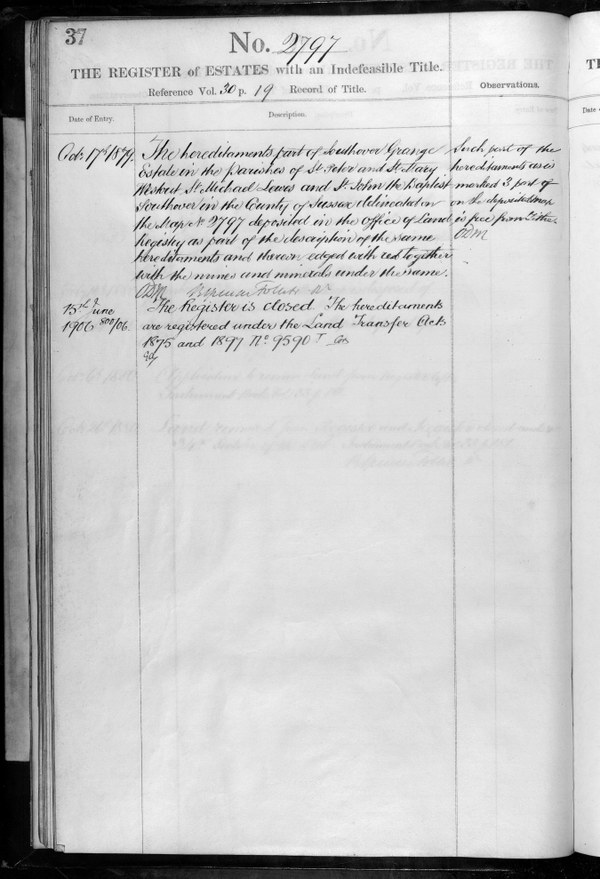 37
No. 2797
THE REGISTER of ESTATES with an Indefeasible Title.
Reference Vol. 30 p. 19 Record of Title.
Observations.
Date of Entry.
Description.
Octr. 17th 1879.
The hereditaments part of Southover Grange
Estate in the Parishes of St. Peter and St. Mary
Westout St. Michael Lewes and St. John the Baptist
Southover in the County of Sussex delineated on
the Map No 2797 deposited in the Office of Land
Registry as part of the description of the same
hereditaments and thereon edged with red together
with the mines and minerals under the same.
Such part of the
hereditaments as is
marked 3 part of
on the deposited map
is free from Tithe
15th June
1906 800/06.
The Register is closed The hereditaments
are registered under the Land Transfer Acts
1875 and 1897 No. 9590